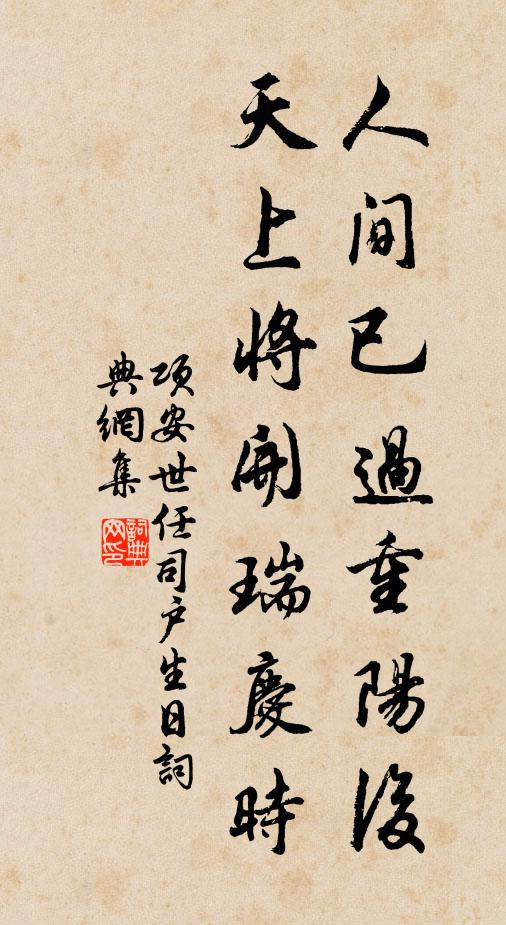 人間已過重陽後
天上將開瑞慶時
項安世任司户生日詞
典網集
詞典網印